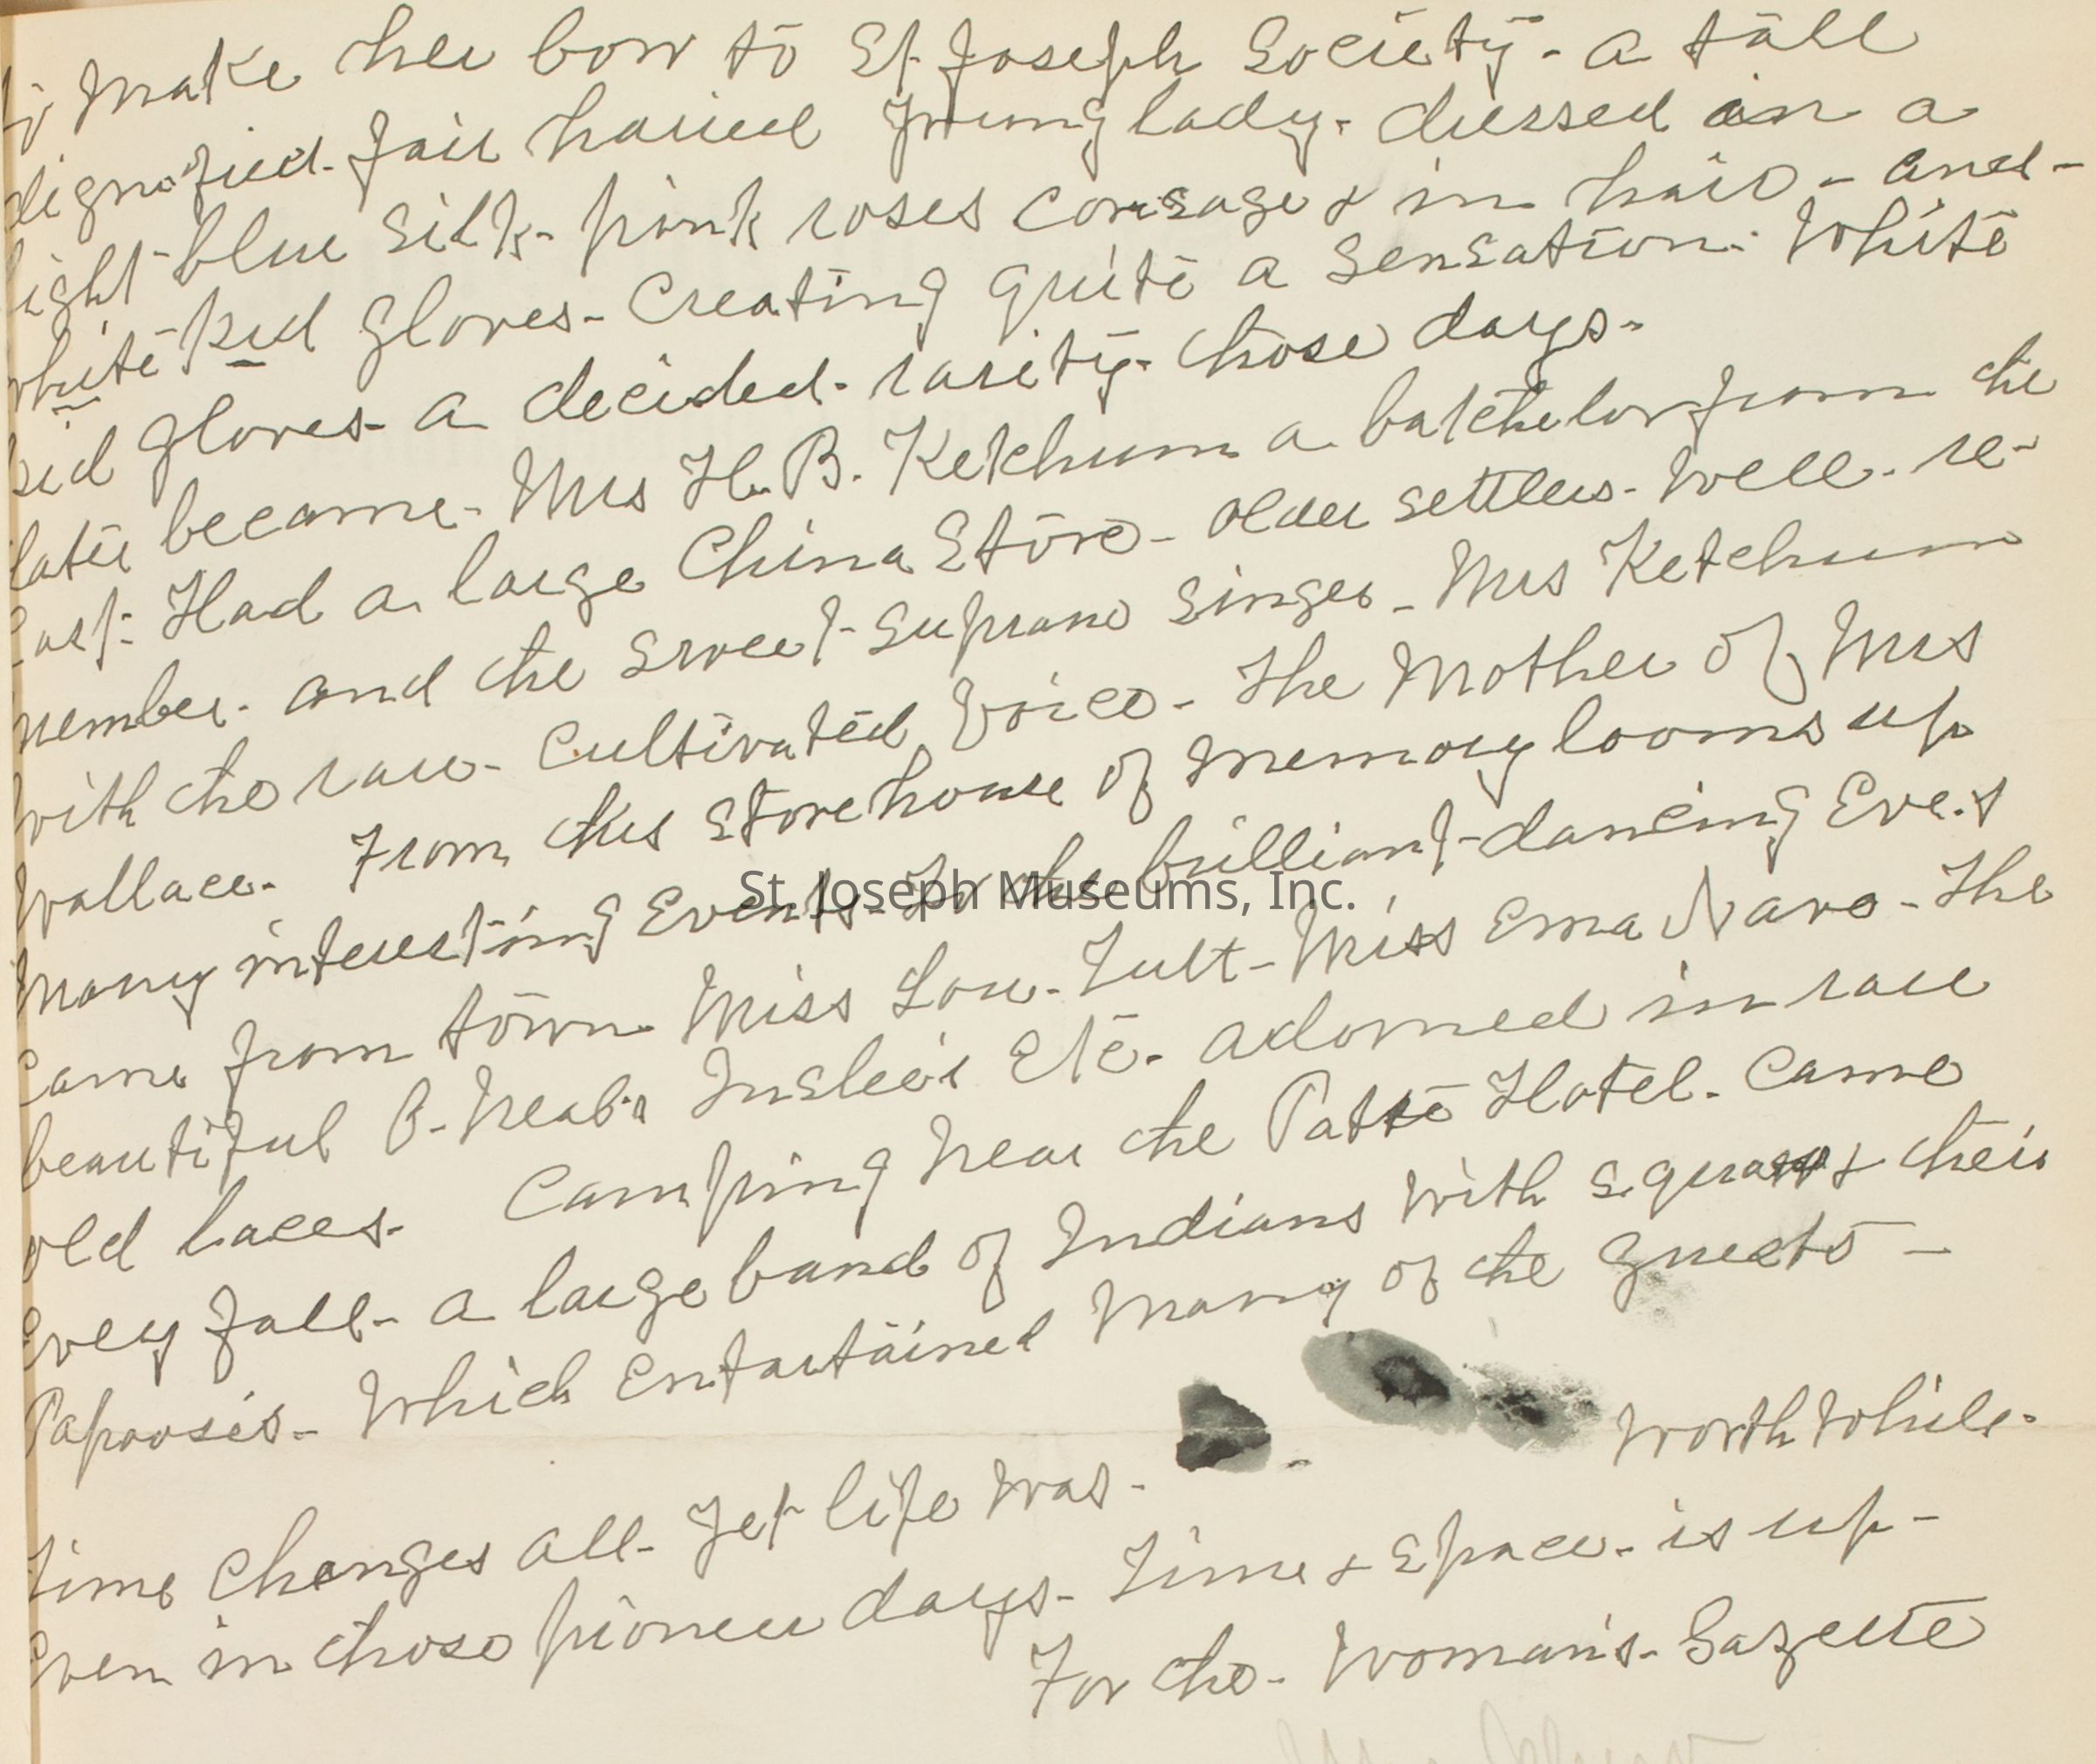 to make her bow to St. Joseph Society - a tall
dignified - fair haired young lady - dressed in a
light - blue silk - pink roses corsage & in hair - and -
white kid gloves - Creating quite a sensation. White
kid gloves - a decided - rarity - those days -
later became - Mrs H. B. Ketchum a batchelor from the
East - Had a large China Store - older settlers - well - re-
member - and the sweet - suprano singer - Mrs Ketchum
with the rare - Cultivated Voice - The Mother of Mrs
Wallace - From this store house of memory looms up
many interesting Events - To the brilliant - dancing Eve.s
St. Joseph Museums, Inc.
came from town Miss Lou - Tult - Miss Ema Nave - The
beautiful B - Neal's Inslee's Etc - adorned in rare
old laces - Camping near the Patte Hotel - Came
Every fall - a large band of Indians with squaws & their
Papooses - Which Entertained Many of the guests -
Time Changes all - Yet life was - - Worth While -
Even in those pioneer days - Time & Space - is up -
For the - Woman's - Gazette